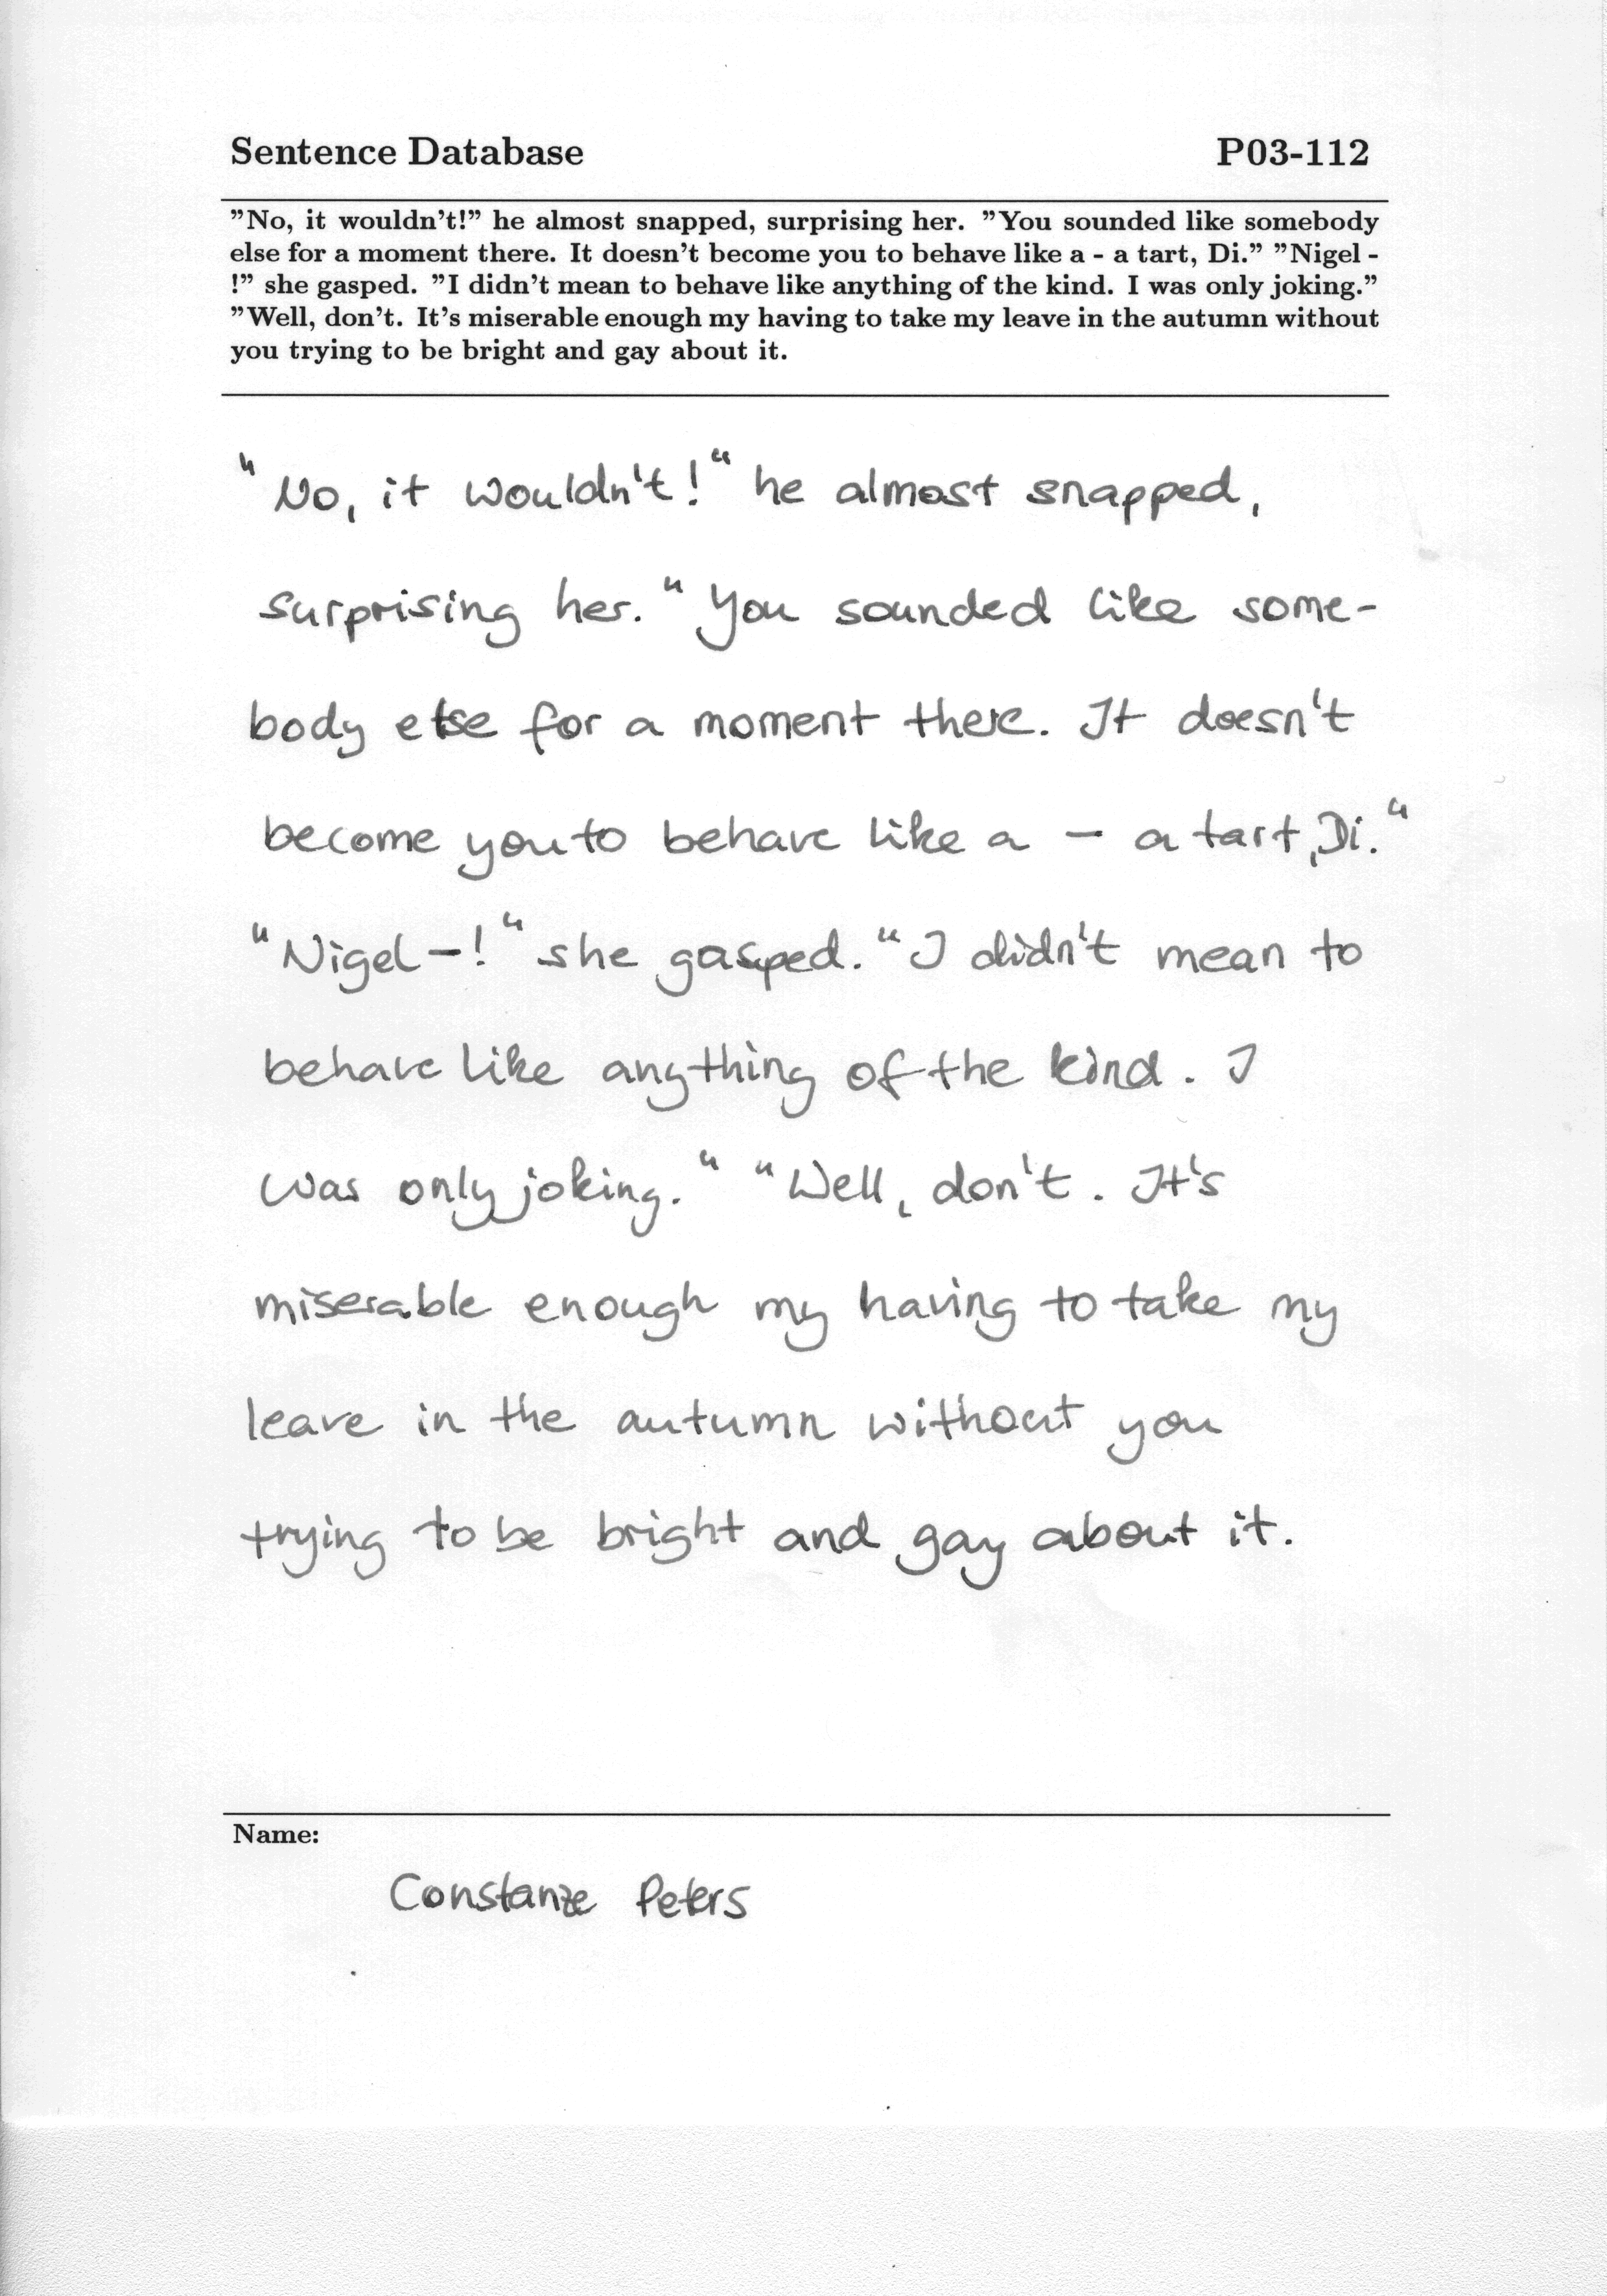 Sentence Database P03-112
"No, it wouldn't!" he almost snapped, surprising her. "You sounded like somebody
else for a moment there. It doesn't become you to behave like a - a tart, Di." "Nigel -
!" she gasped. "I didn't mean to behave like anything of the kind. I was only joking."
"Well, don't. It's miserable enough my having to take my leave in the autumn without
you trying to be bright and gay about it.
"No, it wouldn't!" he almost snapped,
surprising her. "You sounded like some-
body else for a moment there. It doesn't
become you to behave like a - a tart, Di."
"Nigel -!" she gasped. "I didn't mean to
behave like anything of the kind. I
was only joking." "Well, don't. It's
miserable enough my having to take my
leave in the autumn without you
trying to be bright and gay about it.
Name:
Constanze Peters